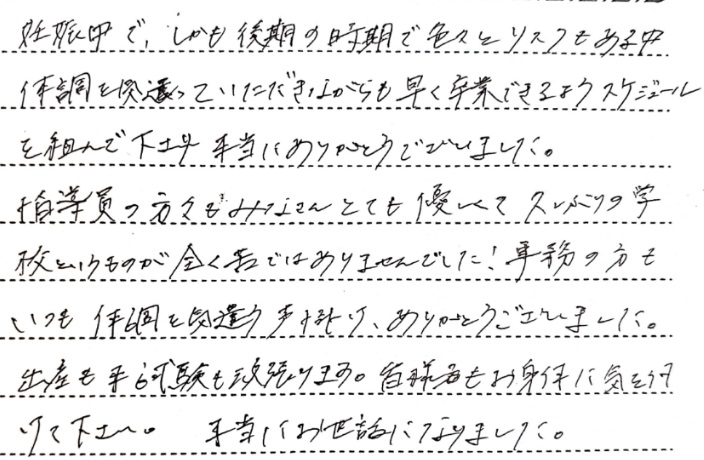 妊娠中で、しかも後期の時期で色々とリスクもある中
体調を気遣っていただきながらも早く卒業できるようスケジュール
を組んで下さり本当にありがとうございました。
指導員の方々もみなさんとても優しくて久しぶりの学
校というものが全く苦ではありませんでした!事務の方も
いつも体調を気遣う声掛け、ありがとうございました。
出産も本試験も頑張ります。皆様もお身体に気を付
けて下さい。 本当にお世話になりました。